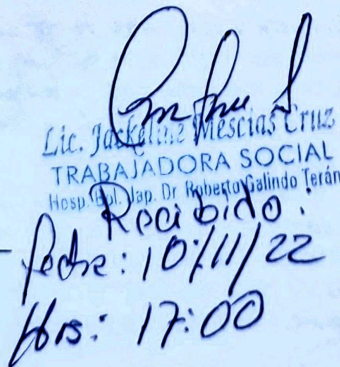 Lic. Jackeline Mescias Cruz
TRABAJADORA SOCIAL
Hosp. Bol. Jap. Dr Roberto Galindo Terán
Recibido:
fecha: 10/11/22
Hrs: 17:00